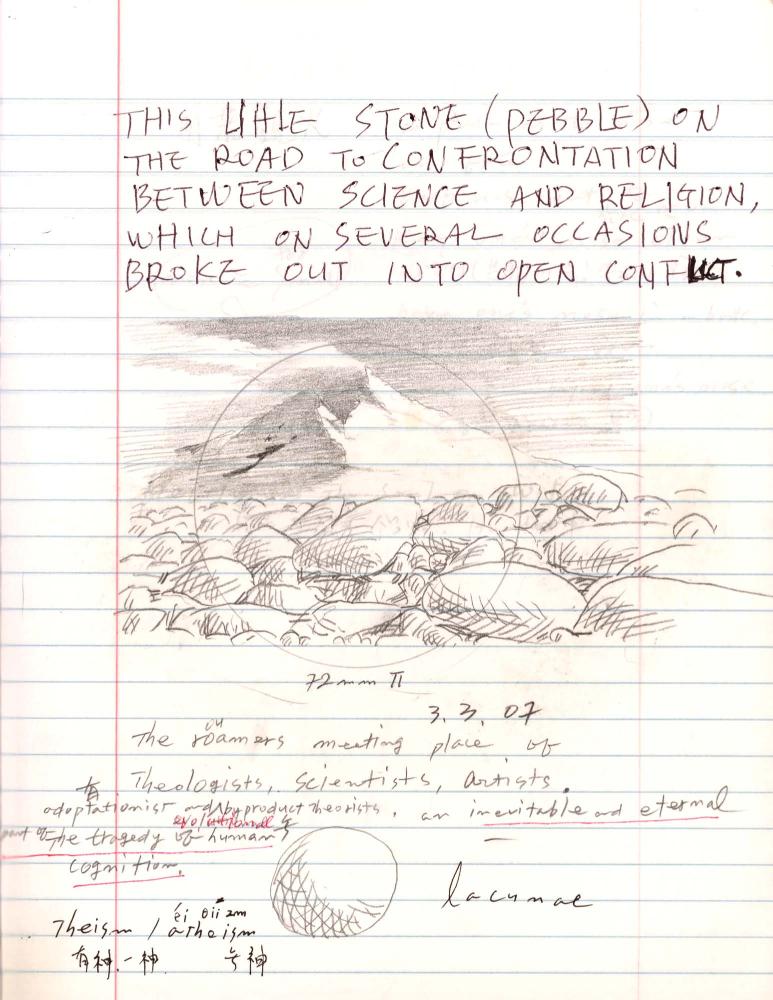 THIS LITTLE STONE (PEBBLE) ON
THE ROAD TO CONFRONTATION
BETWEEN SCIENCE AND RELIGION,
WHICH ON SEVERAL OCCASIONS
BROKE OUT INTO OPEN CONFLICT.
72mm II
3. 3. 07
The roamers meeting place of
Theologists, Scientists, Artists.
有
adaptationist and byproduct theorists, an inevitable and eternal
evolutional
part of the tragedy of human
cognition.
lacunae
Theism / atheism
有神 一神